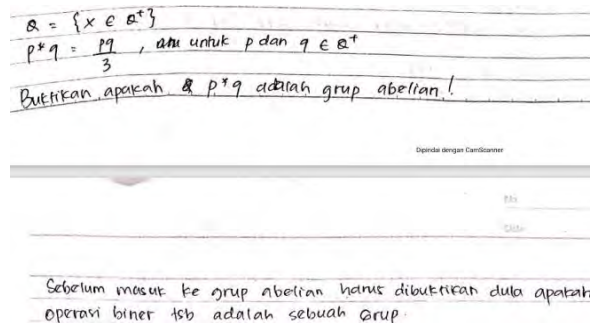 Q = {x ∈ Q⁺}
p*q = pq/3 , untuk p dan q ∈ Q⁺
Buktikan apakah p*q adalah grup abelian!
Dipindai dengan CamScanner
Sebelum masuk ke grup abelian harus dibuktikan dulu apakah
operasi biner tsb adalah sebuah Grup.